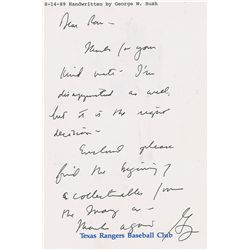 8-14-89 Handwritten by George W. Bush
Dear Ron -
Thanks for your
kind note - I'm
disappointed as well,
but it is the right
decision -
Enclosed please
find the begining of
a collectibles from
the
Thanks again
Texas Rangers Baseball Club